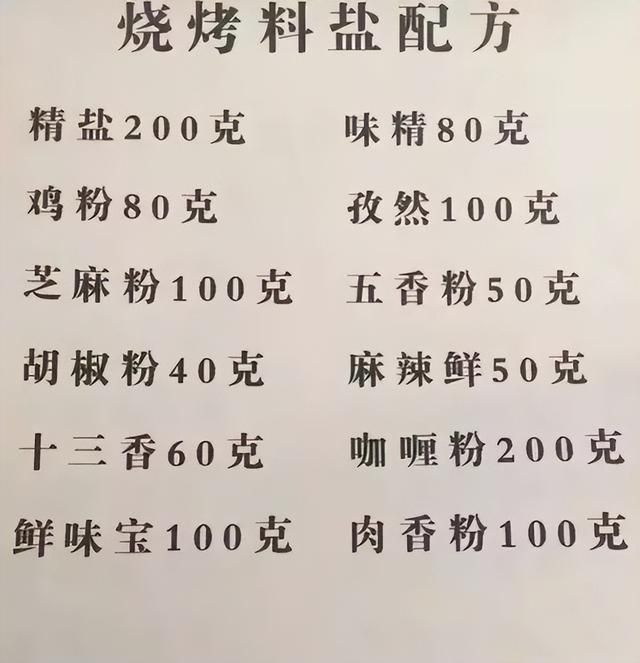 烧烤料盐配方
精盐200克 味精80克
鸡粉80克 孜然100克
芝麻粉100克 五香粉50克
胡椒粉40克 麻辣鲜50克
十三香60克 咖喱粉200克
鲜味宝100克 肉香粉100克